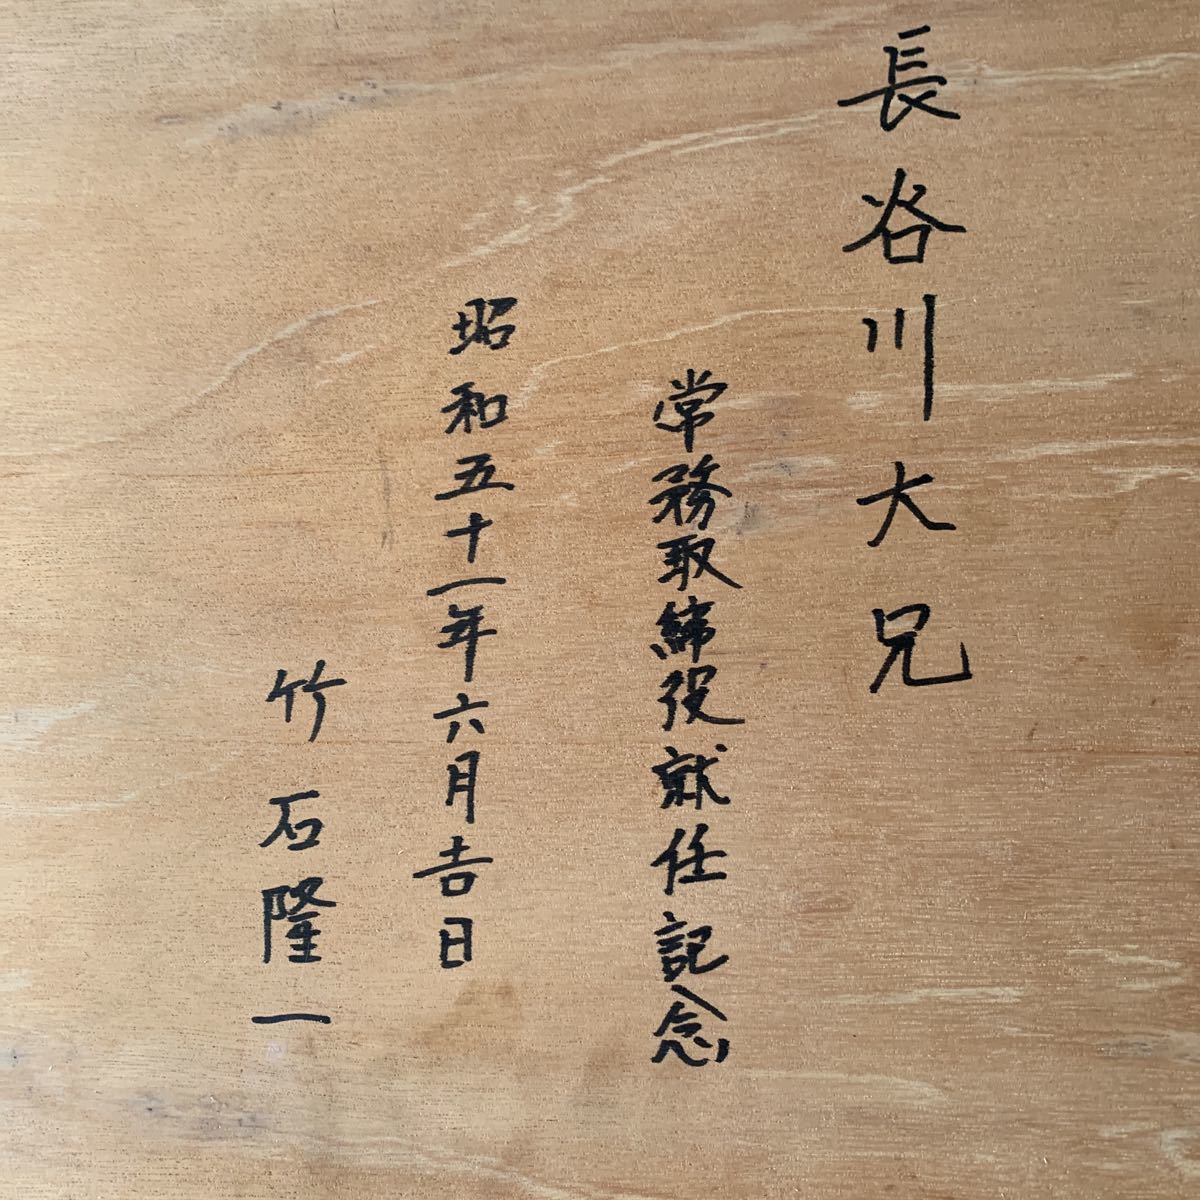 長谷川大兄
常務取締役就任記念
昭和五十一年六月吉日
竹石隆一